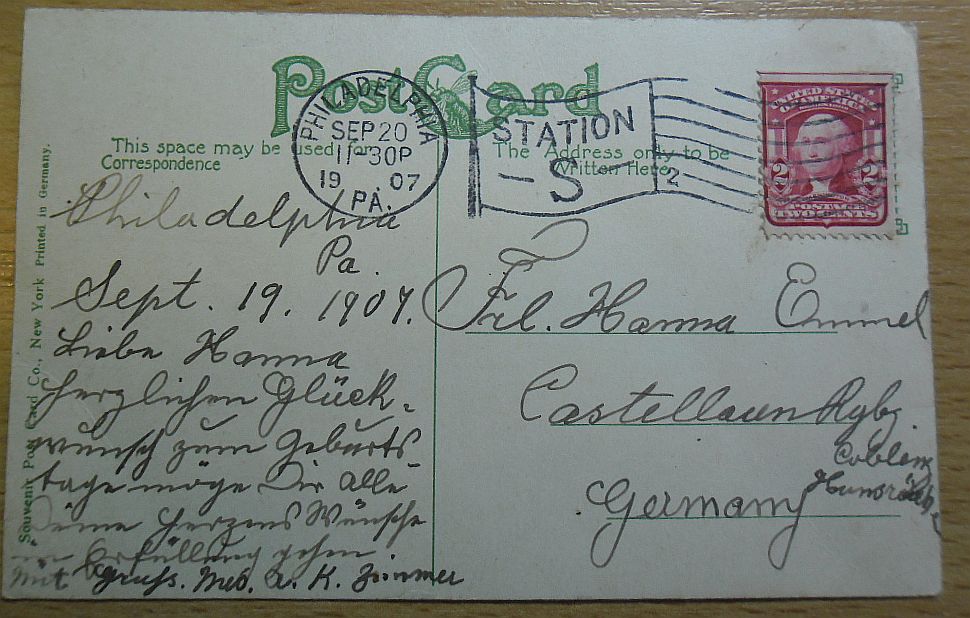 Post Card
PHILADELPHIA
SEP 20
11-30P
19 07
PA.
STATION
S
2
UNITED STATES
OF AMERICA
2 2
POSTAGE
TWO CENTS
This space may be used for
Correspondence
The Address only to be
Written Here
Souvenir Post Card Co., New York Printed in Germany.
Philadelphia
Pa.
Sept. 19. 1907.
Liebe Hanna
Herzlichen Glück-
wunsch zum Geburts
tage möge Dir alle
Deine Herzens Wünsche
in Erfüllung gehen.
Mit Gruss. Mrs. u. K. Zimmer
Frl. Hanna Emmel
Castellaun Rgbz
Coblenz
Hunsrück
Germany